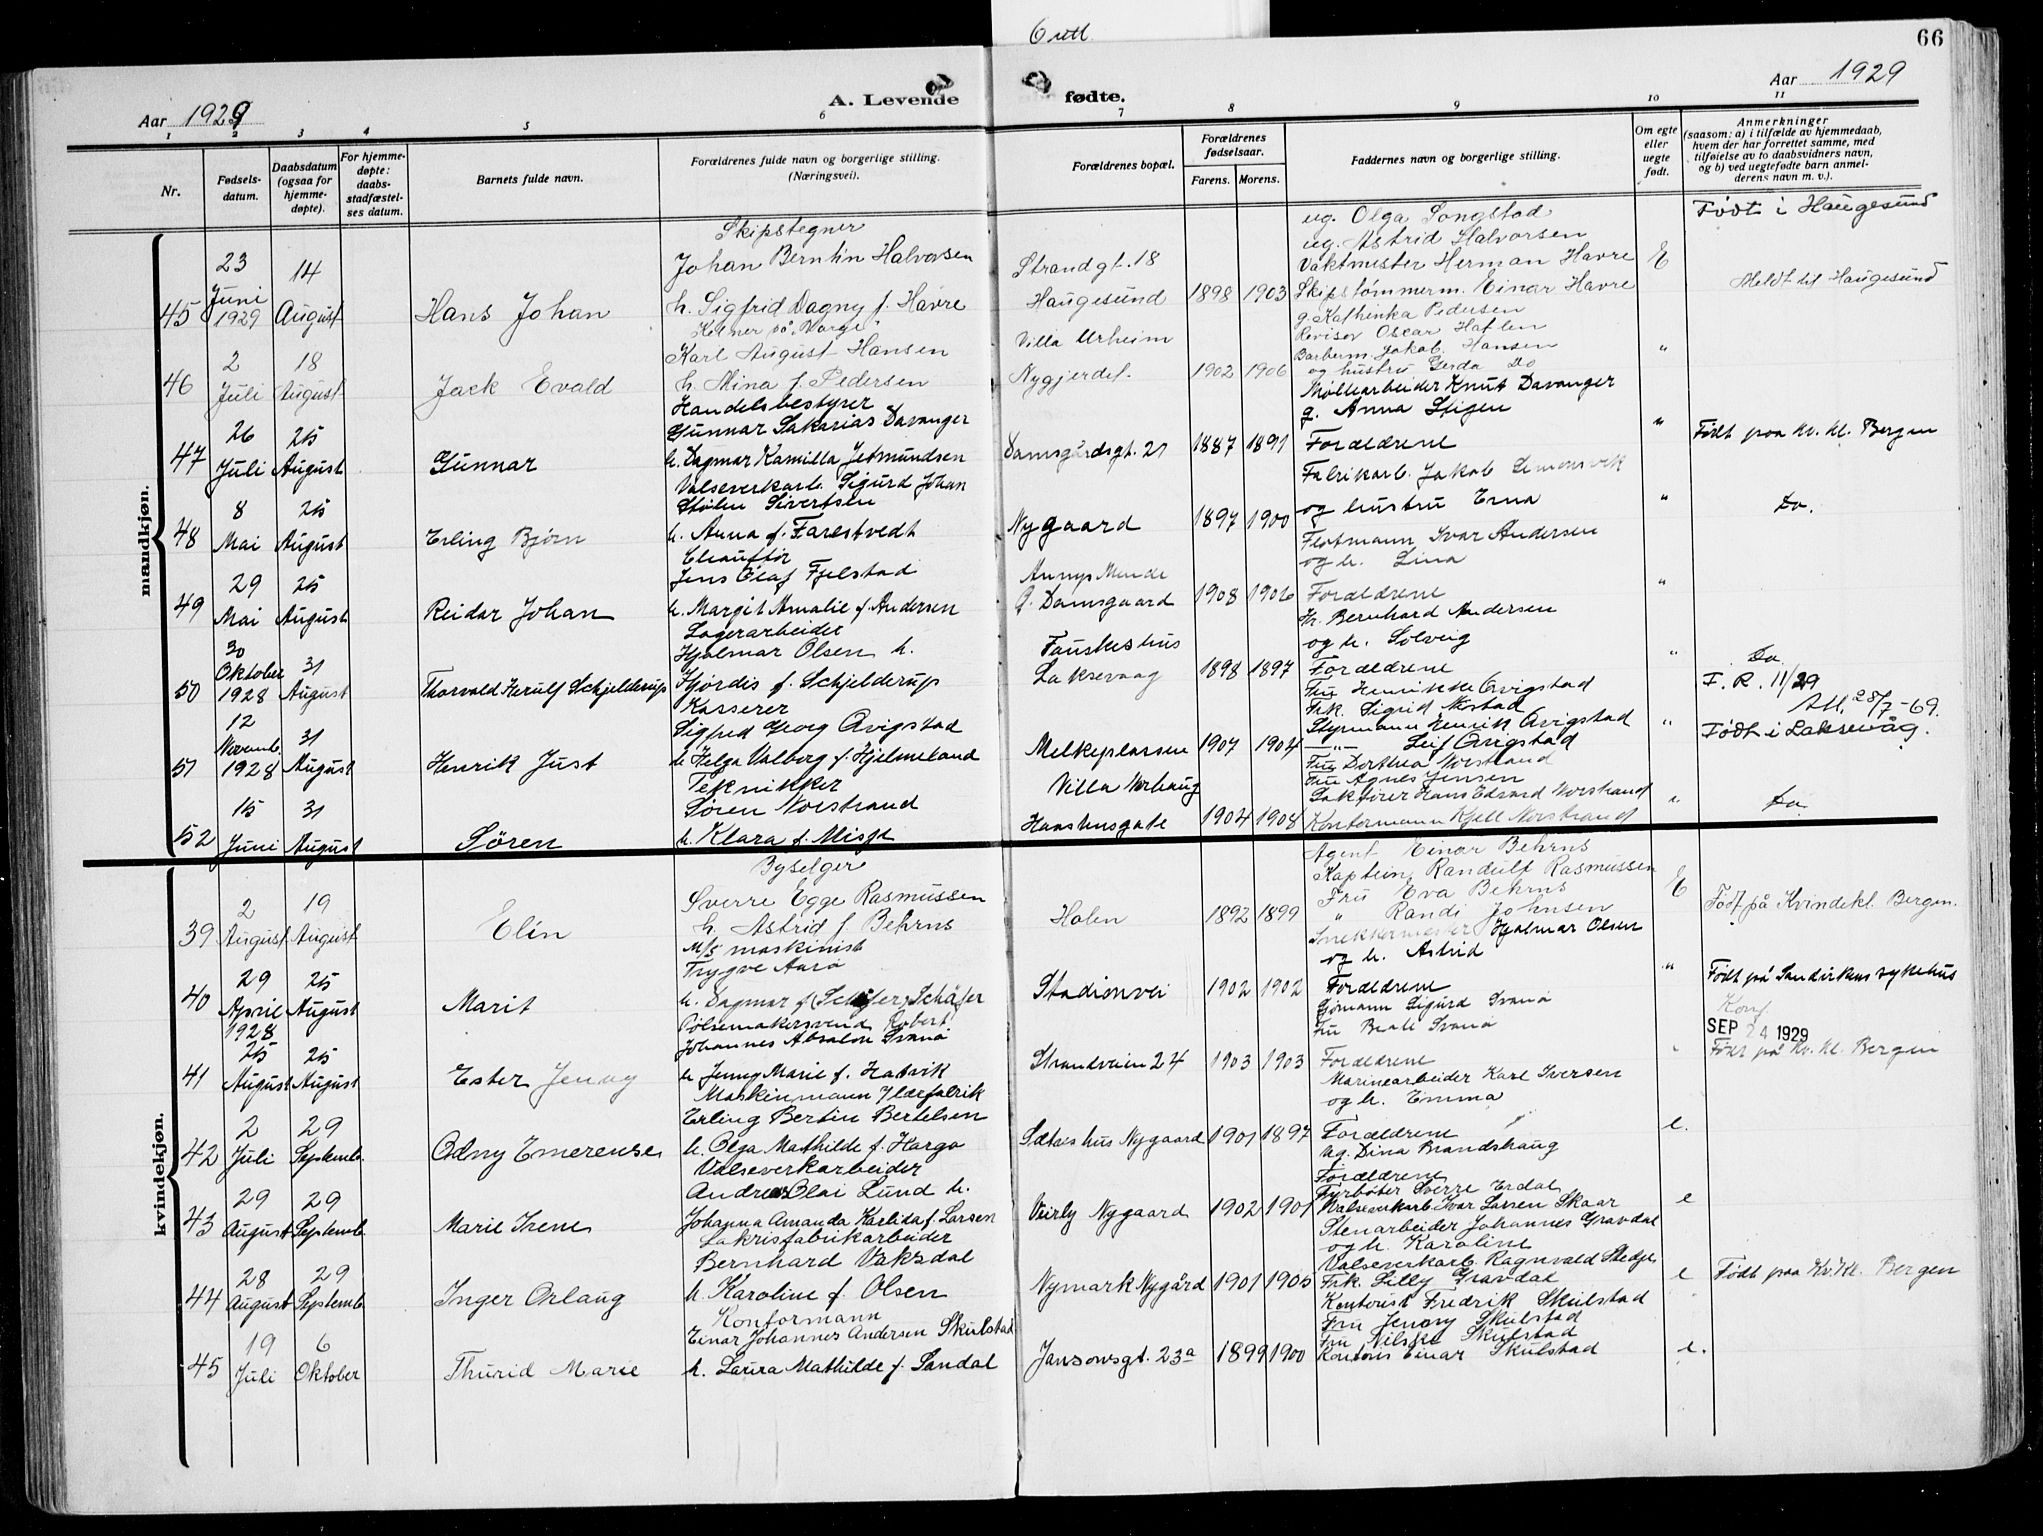 6 utt.
66
Aar 1929
A. Levende
fødte.
Aar 1929
1 2 3 4 5 6 7 8 9 10 11
Nr.
Fødsels-
datum.
Daabsdatum
(ogsaa for
hjemme-
døpte).
For hjemme-
døpte:
daabs-
stadfæstel-
ses datum.
Barnets fulde navn.
Forældrenes fulde navn og borgerlige stilling.
(Næringsvei).
Forældrenes bopæl.
Forældrenes
fødselsaar.
Farens. Morens.
Faddernes navn og borgerlige stilling.
Om egte
eller
uegte
født.
Anmerkninger
(saasom: a) i tilfælde av hjemmedaab,
hvem der har forrettet samme, med
tilføielse av to daabsvidners navn,
og b) ved uegtefødte barn anmel-
derens navn m. v.).
mandkjøn.
45
23
Juni
1929
14
August
Hans Johan
Skipstegner
Johan Berntin Halvorsen
h. Sigfrid Dagny f. Havre
Strandgt. 18
Haugesund
1898 1903
ug. Olga Songstad
ug. Astrid Halvorsen
Vaktmester Herman Havre
Skipstømmerm. Einar Havre
E
Født i Haugesund
Meldt til Haugesund
46
2
Juli
18
August
Jack Evald
Kelner på "Norge"
Karl August Hansen
h. Mina f. Pedersen
Villa Urheim
Nygjerdet.
1902 1906
g. Kathinka Pedersen
Revisor Oscar Hatlen
Barberm. Jakob Hansen
og hustru Gerda Do
"
47
26
Juli
25
August
Gunnar
Handelsbestyrer
Gunnar Sakarias Davanger
h. Dagmar Kamilla Jetmundsen
Damsgårdsgt. 21
1887 1891
Møllearbeider Knut Davanger
g. Anna Stigen
Forældrene
"
Født paa Kv. kl. Bergen
48
8
Mai
25
August
Erling Bjørn
Valseverkarb. Sigurd Johan
Stølen Sivertsen
h. Anna f. Farestvedt
Nygaard
1897 1900
Fabrikarb. Jakob Simonsvik
og hustru Erna
"
Do.
49
29
Mai
25
August
Reidar Johan
Chauffør
Jens Olaf Fjelstad
h. Margit Amalie f. Andersen
Annys Minde
Q. Damsgaard
1908 1906
Flotmann Ivar Andersen
og h. Lina
Forældrene
"
50
30
Oktober
1928
31
August
Thorvald Herulf Schjelderup
Lagerarbeider
Hjalmar Olsen h.
Hjørdis f. Schjelderup
Fauskes hus
Laksevaag
1898 1897
Hr. Bernhard Andersen
og h. Solveig
Forældrene
"
Do.
F. R. 11/29
Att. 28/7-69.
51
12
Novemb.
1928
31
August
Henrik Just
Kasserer
Sigfred Georg Avigstad
h. Helga Valborg f. Hjelmeland
Melkeplassen
1907 1904
Fru Henrikke Avigstad
Frk. Sigrid Nestad
Styrmann Henrik Avigstad
— " — Leif Avigstad
"
Født i Laksevåg.
52
15
Juni
31
August
Søren
Teknikker
Søren Norstrand
h. Klara f. Misje
Villa Norhaug
Haashusgate
1904 1908
Fru Dorthea Norstrand
Fru Agnes Jensen
Sakfører Hans Edvard Norstrand
Kontormann Kjell Norstrand
"
Do.
kvindekjøn.
39
2
August
19
August
Elin
Byselger
Sverre Egge Rasmussen
h. Astrid f. Behrns
Holen
1892 1899
Agent Einar Behrns
Kaptein Randulf Rasmussen
Fru Eva Behrns
" Randi Johnsen
E
Født på Kvindekl. Bergen.
40
29
April
25
August
Marit
M/S maskinist
Trygve Aarø
h. Dagmar f. Schäfer
Stadionvei
1902 1902
Snekkermester Hjalmar Olsen
og h. Astrid
Forældrene
"
Født på Sandvikens sykehus
Konf.
SEP 24 1929
41
1928
25
August
25
August
Ester Jenny
Pølsemakersvend Robert
Johannes Absalon Svanø
h. Jenny Marie f. Hatvik
Strandveien 24
1903 1903
Gjømann Sigurd Svanø
Fru Beate Svanø
Forældrene
"
Født på Kv. kl. Bergen
42
2
Juli
29
Septemb.
Odny Emerense
Maskinmann Ildefabrik
Erling Bertin Bertelsen
h. Olga Mathilde f. Harga
Sætres hus Nygaard
1901 1897
Marinearbeider Karl Iversen
og h. Emma
Forældrene
e.
43
29
August
29
Septemb.
Marie Irene
Valseverkarbeider
Andreas Olai Lund h.
Johanna Amanda Karlida f. Larsen
Veirly Nygaard
1902 1901
ug. Dina Brandshaug
Forældrene
Fyrbøter Sverre Erdal
Valseverkarb. Ivar Larsen Skaar
e
44
28
August
29
Septemb.
Inger Orlaug
Lakrisfabrikarbeider
Bernhard Vaksdal
h. Karoline f. Olsen
Nymark Nygård
1901 1905
Stenarbeider Johannes Gravdal
og h. Karoline
Valseverkarb. Ragnvald Skedge
Frk. Lilly Gravdal
e
Født paa Kv. kl. Bergen
45
19
Juli
6
Oktober
Thurid Marie
Kontormann
Einar Johannes Andersen Skulstad
h. Laura Mathilde f. Sandal
Jansonsgt. 23a
1899 1900
Kontorist Fredrik Skulstad
Fru Jenny Skulstad
Fru Nilska Skulstad
Kontoris Einar Skulstad
e.